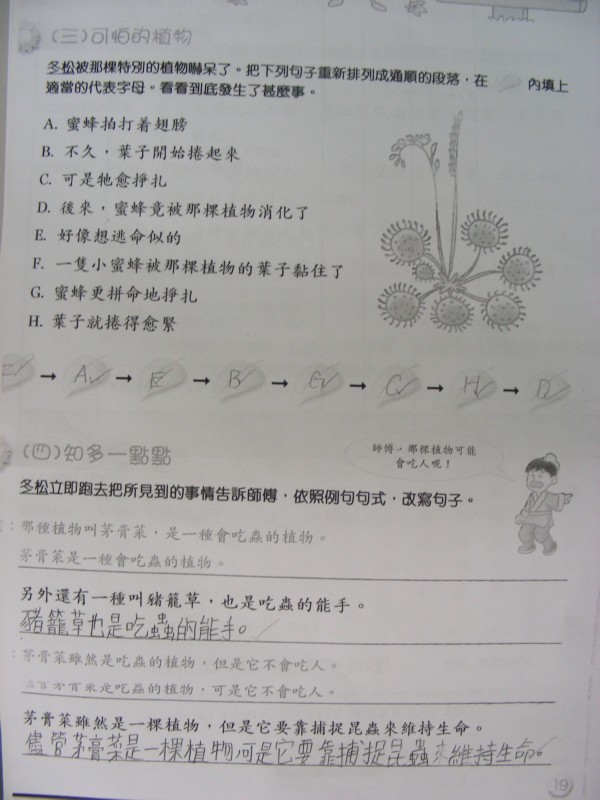 (三)可怕的植物
冬松被那棵特別的植物嚇呆了。把下列句子重新排列成通順的段落，在 內填上
適當的代表字母。看看到底發生了甚麼事。
A. 蜜蜂拍打着翅膀
B. 不久，葉子開始捲起來
C. 可是牠愈掙扎
D. 後來，蜜蜂竟被那棵植物消化了
E. 好像想逃命似的
F. 一隻小蜜蜂被那棵植物的葉子黏住了
G. 蜜蜂更拼命地掙扎
H. 葉子就捲得愈緊
→ A → E → B → G → C → H → D
(四)知多一點點
師傅，那棵植物可能
會吃人呢！
冬松立即跑去把所見到的事情告訴師傅，依照例句句式，改寫句子。
：那種植物叫茅膏菜，是一種會吃蟲的植物。
茅膏菜是一種會吃蟲的植物。
另外還有一種叫豬籠草，也是吃蟲的能手。
豬籠草也是吃蟲的能手。
：茅膏菜雖然是吃蟲的植物，但是它不會吃人。
儘管茅膏菜是吃蟲的植物，可是它不會吃人。
茅膏菜雖然是一棵植物，但是它要靠捕捉昆蟲來維持生命。
儘管茅膏菜是一棵植物，可是它要靠捕捉昆蟲來維持生命。
19